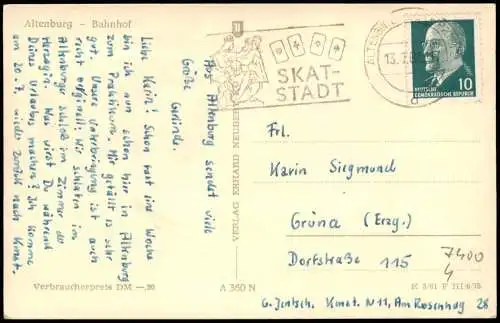 Altenburg - Bahnhof
Liebe Karin! Schon fast eine Woche
bin ich nun schon hier in Altenburg
zum Praktikum. Mir gefällt es sehr
gut. Unsere Unterbringung ist auch
recht originell: Wir schlafen im
Altenburger Schloß im Zimmer der
Herzogin. Was wirst Du während
Deines Urlaubes machen? Ich komme
am 20.7. wieder zurück nach Kmst.
Verbraucherpreis DM —,20
Aus Altenburg sendet viele
Grüße
Gerlinde.
A 360 N
VERLAG ERHARD NEUBERT
SKAT-
STADT
ALTENBURG
13.7.
d
10
DEUTSCHE
DEMOKRATISCHE REPUBLIK
Frl.
Karin Siegmund
Grüna (Erzg.)
Dorfstraße 115
7400
4
K 3/61 F III/6/15
G. Jentsch, Kmst. N 11, Am Rosenhag 28